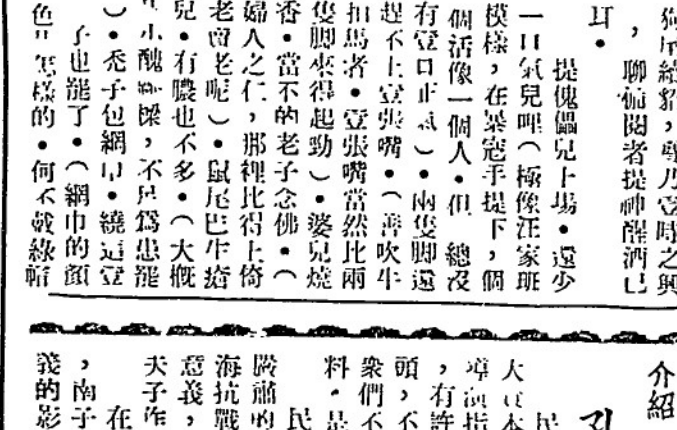 狗尾續貂，聊補閱者提神醒酒已
耳。
提傀儡兒上場。還少
一口氣兒哩（極像汪家班
模樣，在暴寇手提下，個
個活像一個人。但總沒
有這口正氣）。兩隻脚還
趕不上這張嘴。（善吹牛
拍馬者。這張嘴當然比兩
隻脚來得起勁）。婆兒燒
香。當不的老子念佛。（
婦人之仁，那裡比得上倚
老賣老呢）。鼠尾巴生瘡
兒。有膿也不多。（大槪
小醜跳梁，不足爲患罷
）。禿子包網巾。繞這
子也罷了。（網巾的顏
色 怎樣的。何不戴綠帽
介紹
民
大 本
導 指
，有許
頭，不
衆們不
料。是
民
嚴肅的
海抗戰
意義，
天子作
在
，南子
義的影